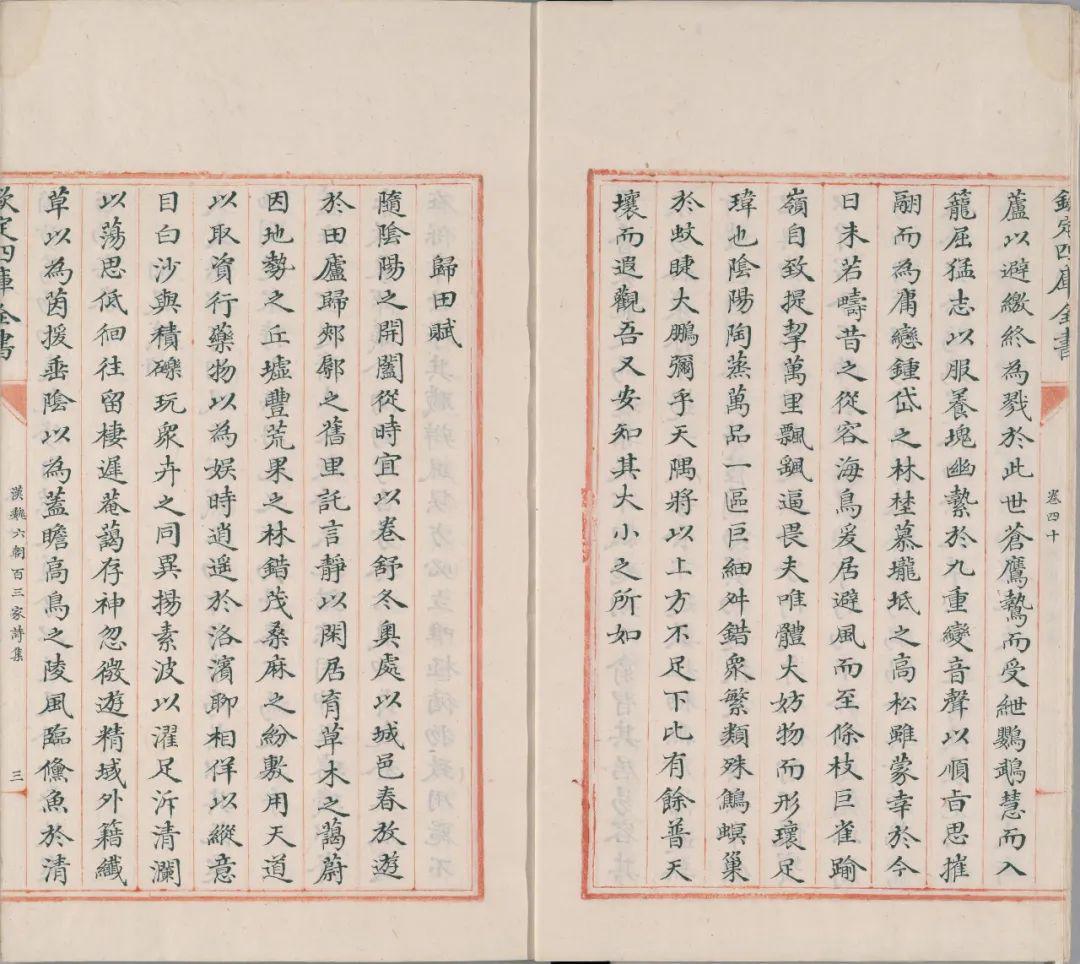 欽定四庫全書
卷四十
蘆以避繳終為戮於此世蒼鷹鷙而受紲鸚鵡慧而入
籠屈猛志以服養塊幽縶於九重變音聲以順旨思摧
翮而為庸戀鍾岱之林埜慕壠坻之高松雖蒙幸於今
日未若疇昔之從容海鳥爰居避風而至條枝巨雀踰
嶺自致提挈萬里飄颻逼畏夫唯體大妨物而形瓌足
瑋也陰陽陶蒸萬品一區巨細舛錯衆繁類殊鷦螟巢
於蚊睫大鵬彌乎天隅將以上方不足下比有餘普天
壤而遐觀吾又安知其大小之所如
歸田賦
隨陰陽之開闔從時宜以卷舒冬奧處以城邑春放遊
於田廬歸郟鄏之舊里託言靜以閑居育草木之藹蔚
因地勢之丘墟豐荒果之林錯茂桑麻之紛敷用天道
以取資行藥物以為娛時逍遥於洛濱聊相佯以縱意
目白沙與積礫玩衆卉之同異揚素波以濯足泝清瀾
以蕩思低徊住留棲遲菴藹存神忽微遊精域外籍纖
草以為茵援垂陰以為蓋瞻高鳥之陵風臨儵魚於清
欽定四庫全書
漢魏六朝百三家詩集
三